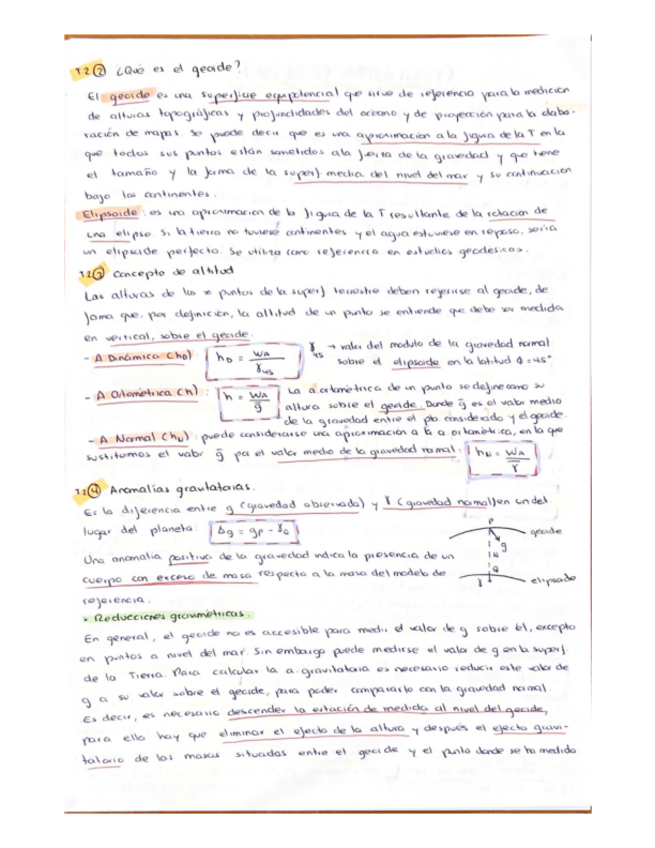 T.2 ② ¿Qué es el geoide?
El geoide es una superficie equipotencial que sirve de referencia para la medición
de alturas topográficas y profundidades del océano y de proyección para la elabo-
ración de mapas. Se puede decir que es una aproximación a la figura de la T en la
que todos sus puntos están sometidos a la fuerza de la gravedad y que tiene
el tamaño y la forma de la superf media del nivel del mar y su continuación
bajo los continentes.
Elipsoide: es una aproximación de la figura de la T resultante de la rotación de
una elipse si la tierra no tuviese continentes y el agua estuviese en reposo, sería
un elipsoide perfecto. Se utiliza como referencia en estudios geodésicos.
T.2 ③ Concepto de altitud
Las alturas de los ≠ puntos de la superf terrestre deben referirse al geoide, de
forma que, por definición, la altitud de un punto se entiende que debe ser medida
en vertical, sobre el geoide.
- A Dinámica (hD): hD = WA / γ45 γ45 → valor del modulo de la gravedad normal
sobre el elipsoide en la latitud ϕ = 45°
- A Ortométrica (h): h = WA / g̅ La a.ortométrica de un punto se define como su
altura sobre el geoide. Donde g̅ es el valor medio
de la gravedad entre el pto. considerado y el geoide.
- A Normal (hN): puede considerarse una aproximación a la a. ortométrica, en la que
sustituimos el valor g̅ por el valor medio de la gravedad normal: hN = WA / γ̅
T.2 ④ Anomalías gravitatorias.
Es la diferencia entre g (gravedad observada) y γ (gravedad normal) en un det.
lugar del planeta: Δg = gP - γQ
P
geoide
g
N
Q
γ
elipsoide
Una anomalía positiva de la gravedad indica la presencia de un
cuerpo con exceso de masa respecto a la masa del modelo de
referencia.
• Reducciones gravimétricas.
En general, el geoide no es accesible para medir el valor de g sobre él, excepto
en puntos a nivel del mar. Sin embargo puede medirse el valor de g en la superf.
de la Tierra. Para calcular la a. gravitatoria es necesario reducir este valor de
g a su valor sobre el geoide, para poder compararlo con la gravedad normal.
Es decir, es necesario descender la estación de medida al nivel del geoide,
para ello hay que eliminar el efecto de la altura y después el efecto gravi-
tatorio de las masas situadas entre el geoide y el punto donde se ha medido